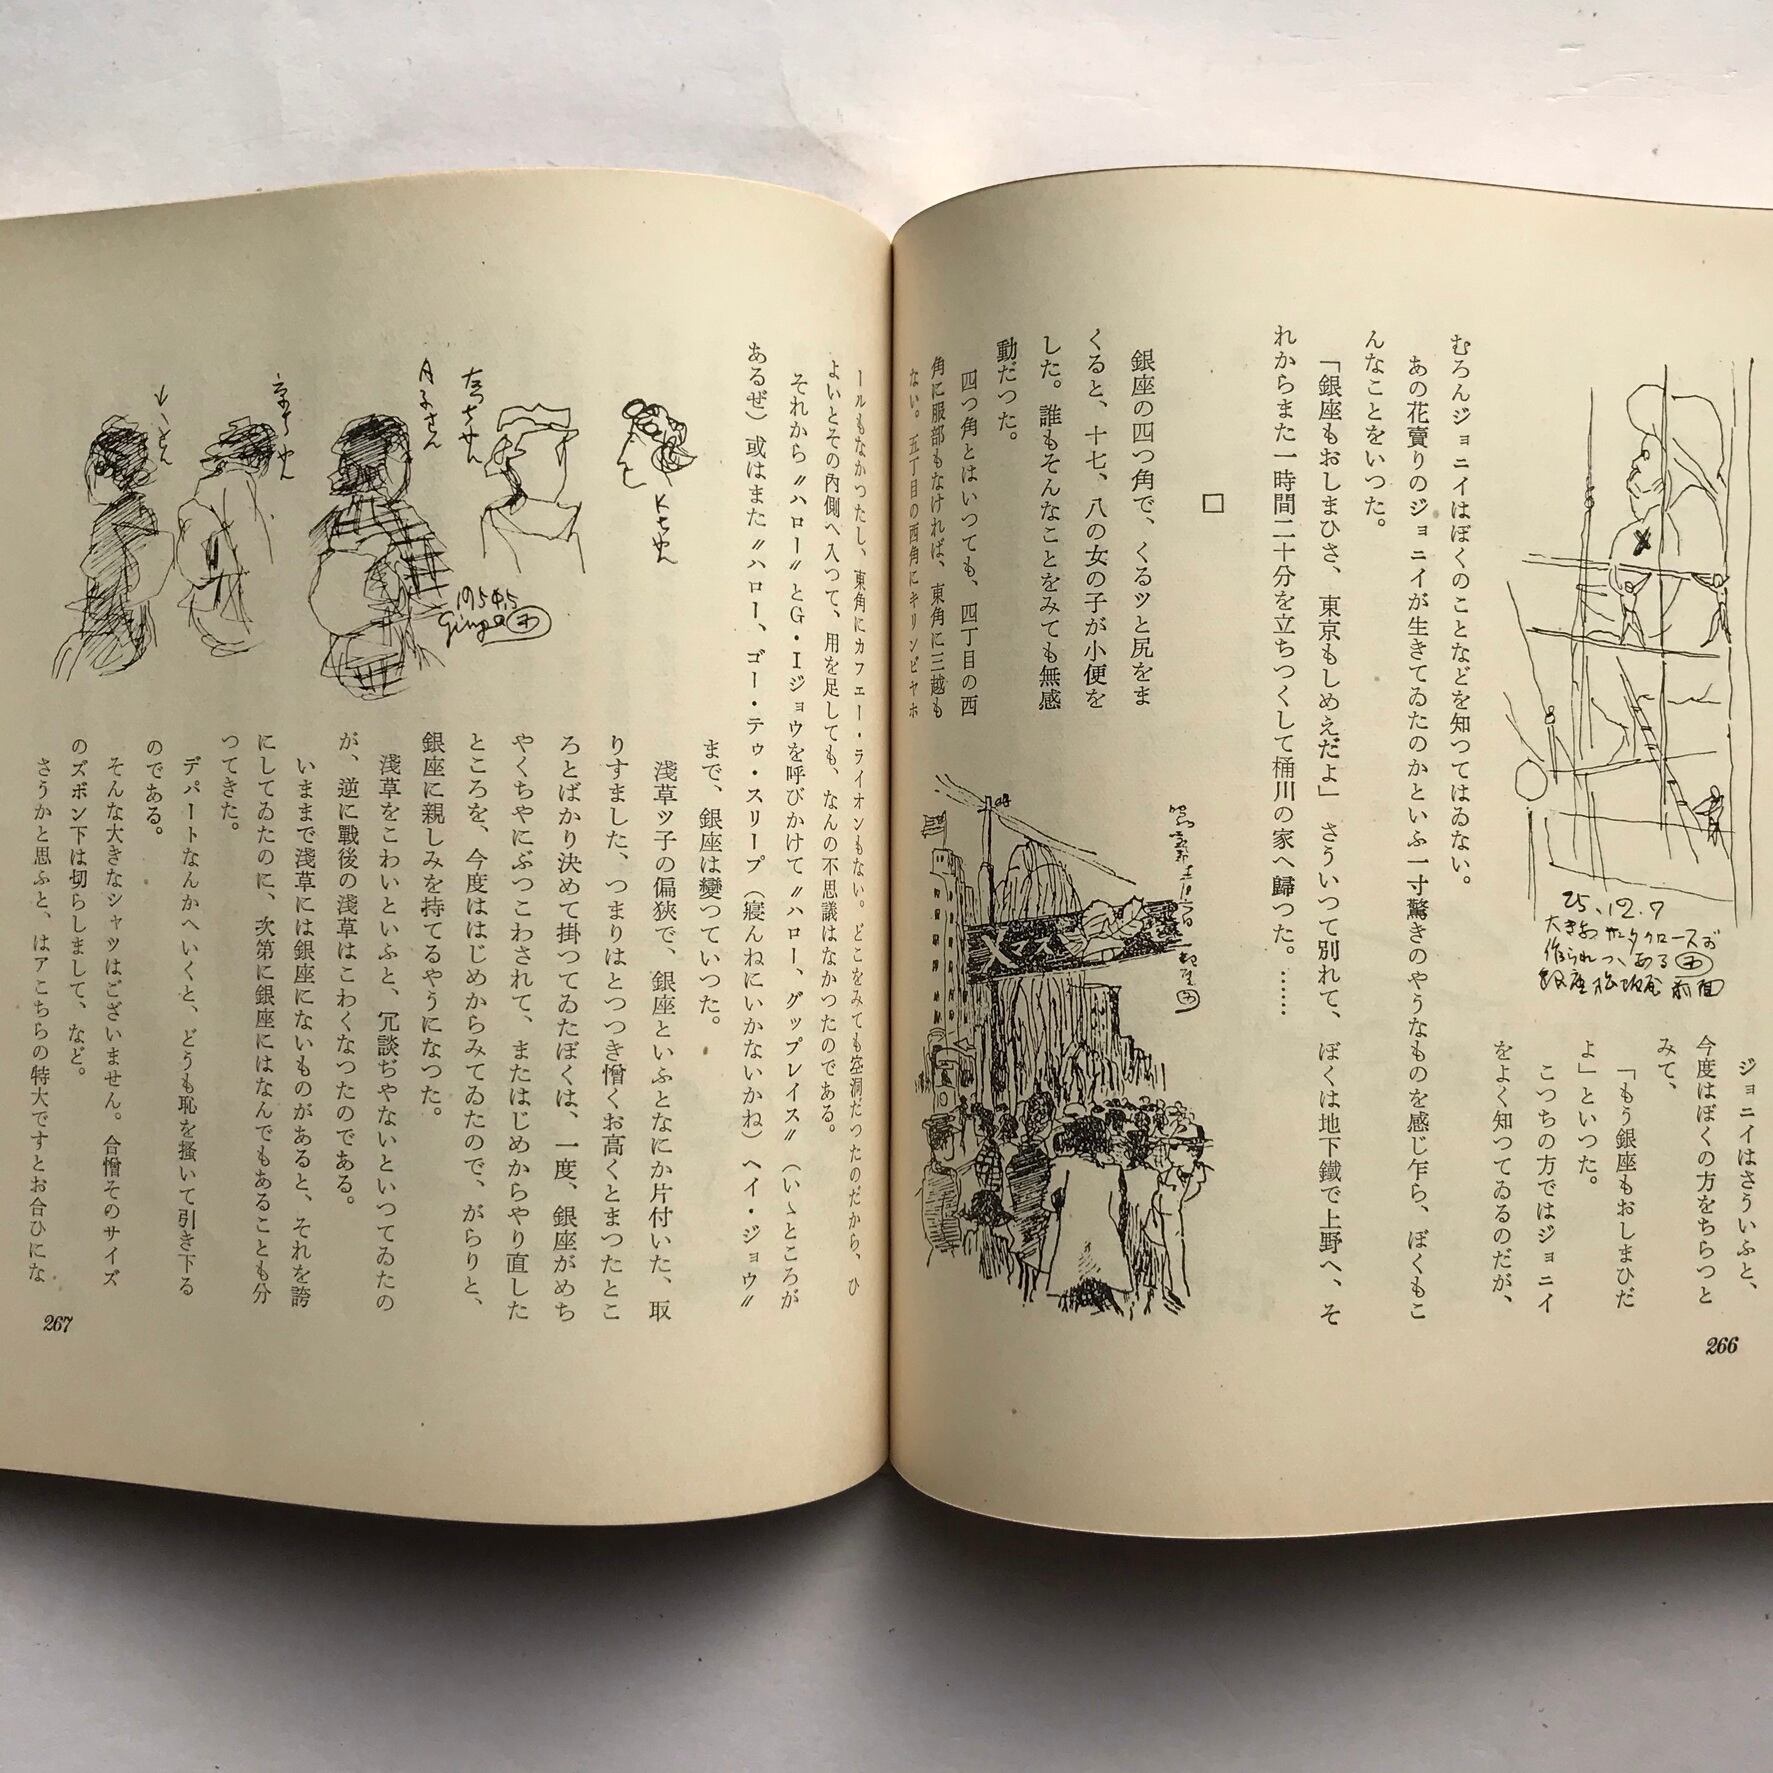 ジョニイはさういふと、
今度はぼくの方をちらつと
みて、
「もう銀座もおしまひだ
よ」といつた。
こつちの方ではジョニイ
をよく知つてゐるのだが、
むろんジョニイはぼくのことなどを知つてはゐない。
あの花賣りのジョニイが生きてゐたのかといふ一寸驚きのやうなものを感じ乍ら、ぼくもこ
んなことをいつた。
「銀座もおしまひさ、東京もしめえだよ」さういつて別れて、ぼくは地下鐵で上野へ、そ
れからまた一時間二十分を立ちつくして桶川の家へ歸つた。……
□
銀座の四つ角で、くるッと尻をま
くると、十七、八の女の子が小便を
した。誰もそんなことをみても無感
動だつた。
四つ角とはいつても、四丁目の西
角に服部もなければ、東角に三越も
ない。五丁目の西角にキリンビヤホ
25.12.7
大きな サンタクロースが
作られつゝある
銀座松坂屋 前面
Xマス
266
ールもなかつたし、東角にカフエー・ライオンもない。どこをみても空洞だつたのだから、ひ
よいとその内側へ入つて、用を足しても、なんの不思議はなかつたのである。
それから〃ハロー〃とG・Iジョウを呼びかけて〃ハロー、グップレイス〃(いゝところが
あるぜ)或はまた〃ハロー、ゴー・テゥ・スリープ(寢んねにいかないかね)ヘイ・ジョウ〃
まで、銀座は變つていつた。
淺草ッ子の偏狹で、銀座といふとなにか片付いた、取
りすました、つまりはとつつき憎くお高くとまつたとこ
ろとばかり決めて掛つてゐたぼくは、一度、銀座がめち
やくちやにぶつこわされて、またはじめからやり直した
ところを、今度ははじめからみてゐたので、がらりと、
銀座に親しみを持てるやうになつた。
淺草をこわいといふと、冗談ぢやないといつてゐたの
が、逆に戰後の淺草はこわくなつたのである。
いままで淺草には銀座にないものがあると、それを誇
にしてゐたのに、次第に銀座にはなんでもあることも分
つてきた。
デパートなんかへいくと、どうも恥を搔いて引き下る
のである。
そんな大きなシャツはございません。合憎そのサイズ
のズボン下は切らしまして、など。
さうかと思ふと、はアこちらの特大ですとお合ひにな
Kちやん
A子さん
Ginza
267